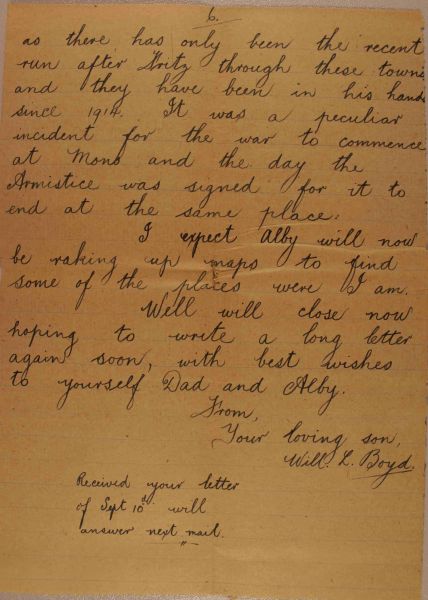 6.
as there has only been the recent
run after Fritz through these towns
and they have been in his hands
since 1914. It was a peculiar
incident for the war to commence
at Mons and the day the
Armistice was signed for it to
end at the same place.
I expect Alby will now
be raking up maps to find
some of the places were I am.
Well will close now
hoping to write a long letter
again soon, with best wishes
to yourself Dad and Alby.
From,
Your loving son,
Will. L. Boyd.
Received your letter
of Sept 10th will
answer next mail.